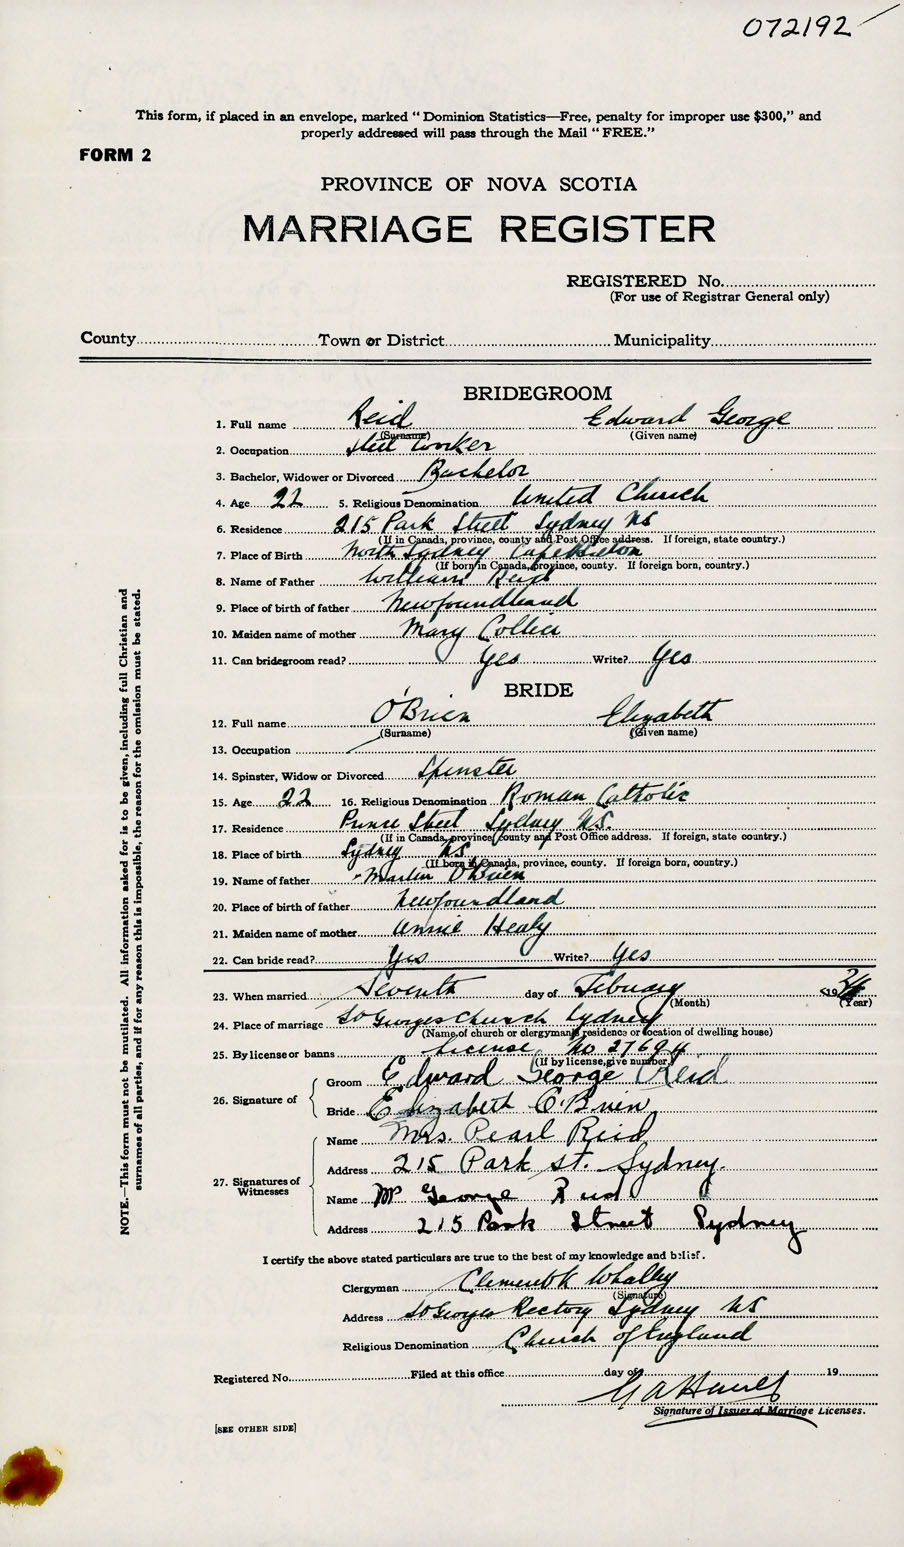 072192
This form, if placed in an envelope, marked "Dominion Statistics—Free, penalty for improper use $300," and
properly addressed will pass through the Mail "FREE."
FORM 2
PROVINCE OF NOVA SCOTIA
MARRIAGE REGISTER
REGISTERED No.
(For use of Registrar General only)
County Town or District Municipality
BRIDEGROOM
1. Full name Reid Edward George
(Surname) (Given name)
2. Occupation Steel Worker
3. Bachelor, Widower or Divorced Bachelor
4. Age 22 5. Religious Denomination United Church
6. Residence 215 Park Street Sydney NS
(If in Canada, province, county and Post Office address. If foreign, state country.)
7. Place of Birth North Sydney Cape Breton
(If born in Canada, province, county. If foreign born, country.)
8. Name of Father William Reid
9. Place of birth of father Newfoundland
10. Maiden name of mother Mary Collier
11. Can bridegroom read? Yes Write? Yes
BRIDE
12. Full name O'Brien Elizabeth
(Surname) (Given name)
13. Occupation
14. Spinster, Widow or Divorced Spinster
15. Age 22 16. Religious Denomination Roman Catholic
17. Residence Prince Street Sydney N.S.
(If in Canada, province, county and Post Office address. If foreign, state country.)
18. Place of birth Sydney NS
(If born in Canada, province, county. If foreign born, country.)
19. Name of father Martin O'Brien
20. Place of birth of father Newfoundland
21. Maiden name of mother Annie Healy
22. Can bride read? Yes Write? Yes
23. When married Seventh day of Febuary 19
(Month) (Year)
24. Place of marriage St Georges Church Sydney
(Name of church or clergyman's residence or location of dwelling house)
25. By license or banns License No 27694
(If by license, give number)
26. Signature of Groom Edward George Reid
Bride Elizabeth O'Brien
27. Signatures of Witnesses Name Mrs. Pearl Reid
Address 215 Park St. Sydney.
Name Mr George Reid
Address 215 Park Street Sydney
I certify the above stated particulars are true to the best of my knowledge and belief.
Clergyman Whalley
(Signature)
Address St Georges Rectory Sydney NS
Religious Denomination Church of England
Registered No. Filed at this office day of 19
Signature of Issuer of Marriage Licenses.
[SEE OTHER SIDE]
NOTE.—This form must not be mutilated. All information asked for is to be given, including full Christian and
surnames of all parties, and if for any reason this is impossible, the reason for the omission must be stated.